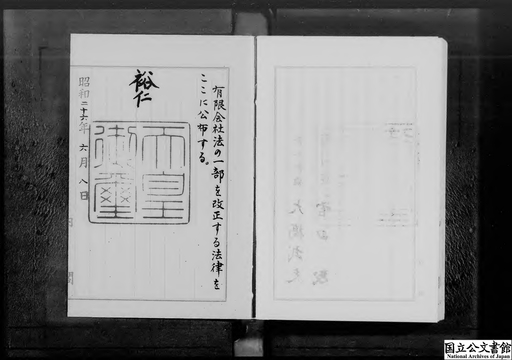 有限会社法の一部を改正する法律を
ここに公布する。
裕仁
天皇
御璽
昭和二十六年六月八日
国立公文書館
National Archives of Japan